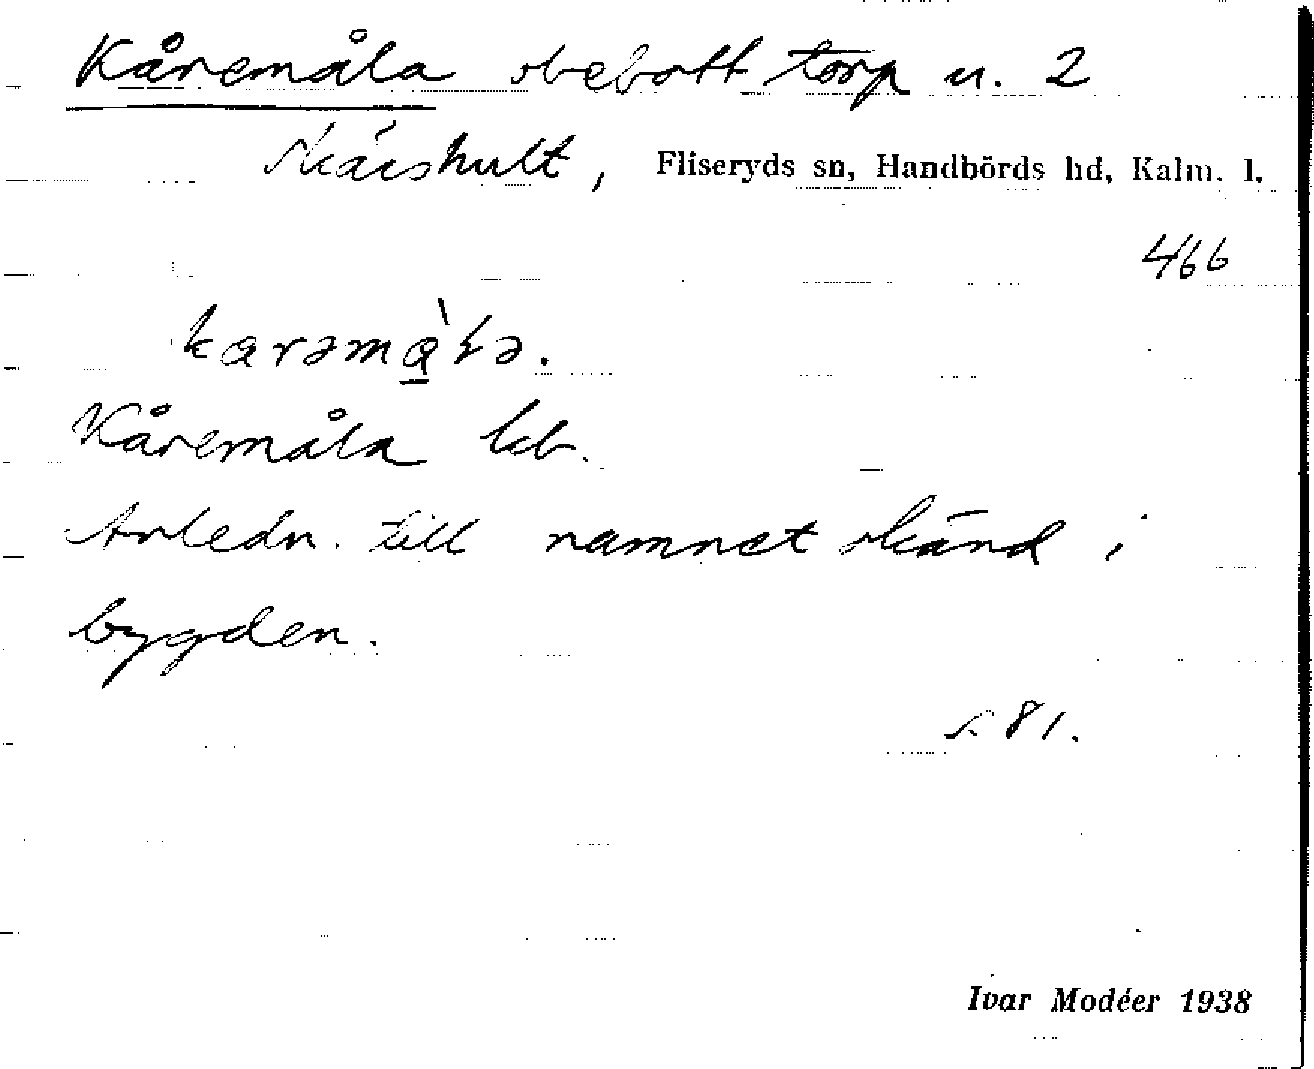 Kåremåla obebott torp u. 2
Skärshult, Fliseryds sn, Handbörds hd, Kalm. l.
466
karəmàlə.
Kåremåla kb.
Anledn. till namnet okänd i
bygden.
s. 81.
Ivar Modéer 1938